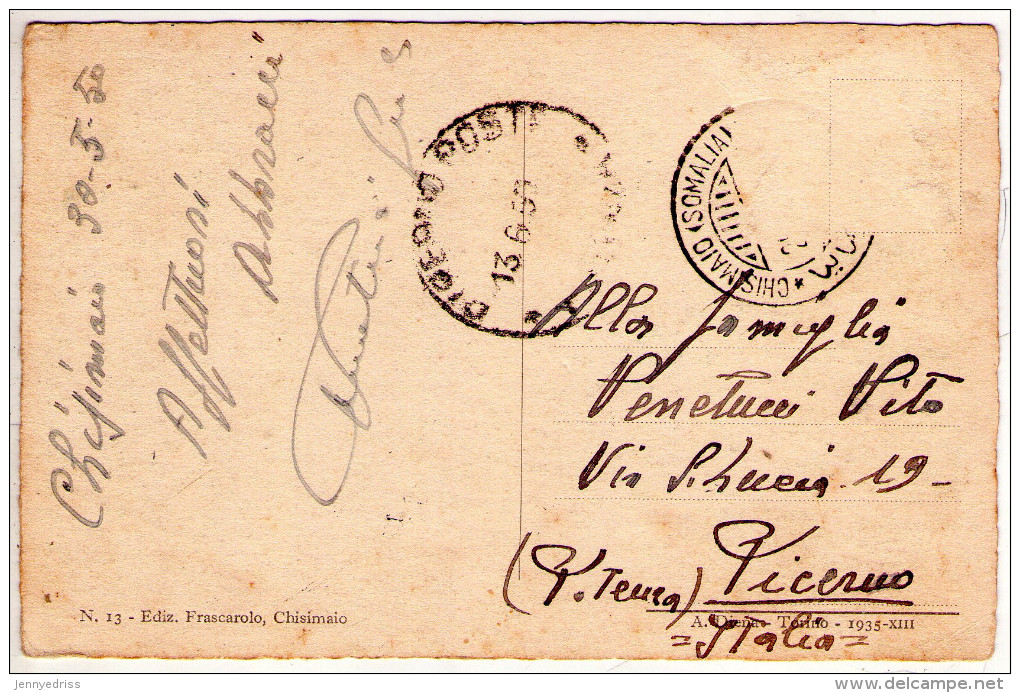 Chisimaio 30-5-50
Affettuosi
abbracci
POSTE
13.6.50
* CHISIMAIO (SOMALIA)
Alla famiglia
Venetucci Vito
Via S. Lucia 19 -
(P. Tenza) Picerno
= Italia =
N. 13 - Ediz. Frascarolo, Chisimaio
A. Diena - Torino - 1935-XIII
jennyedriss
delcampe.net